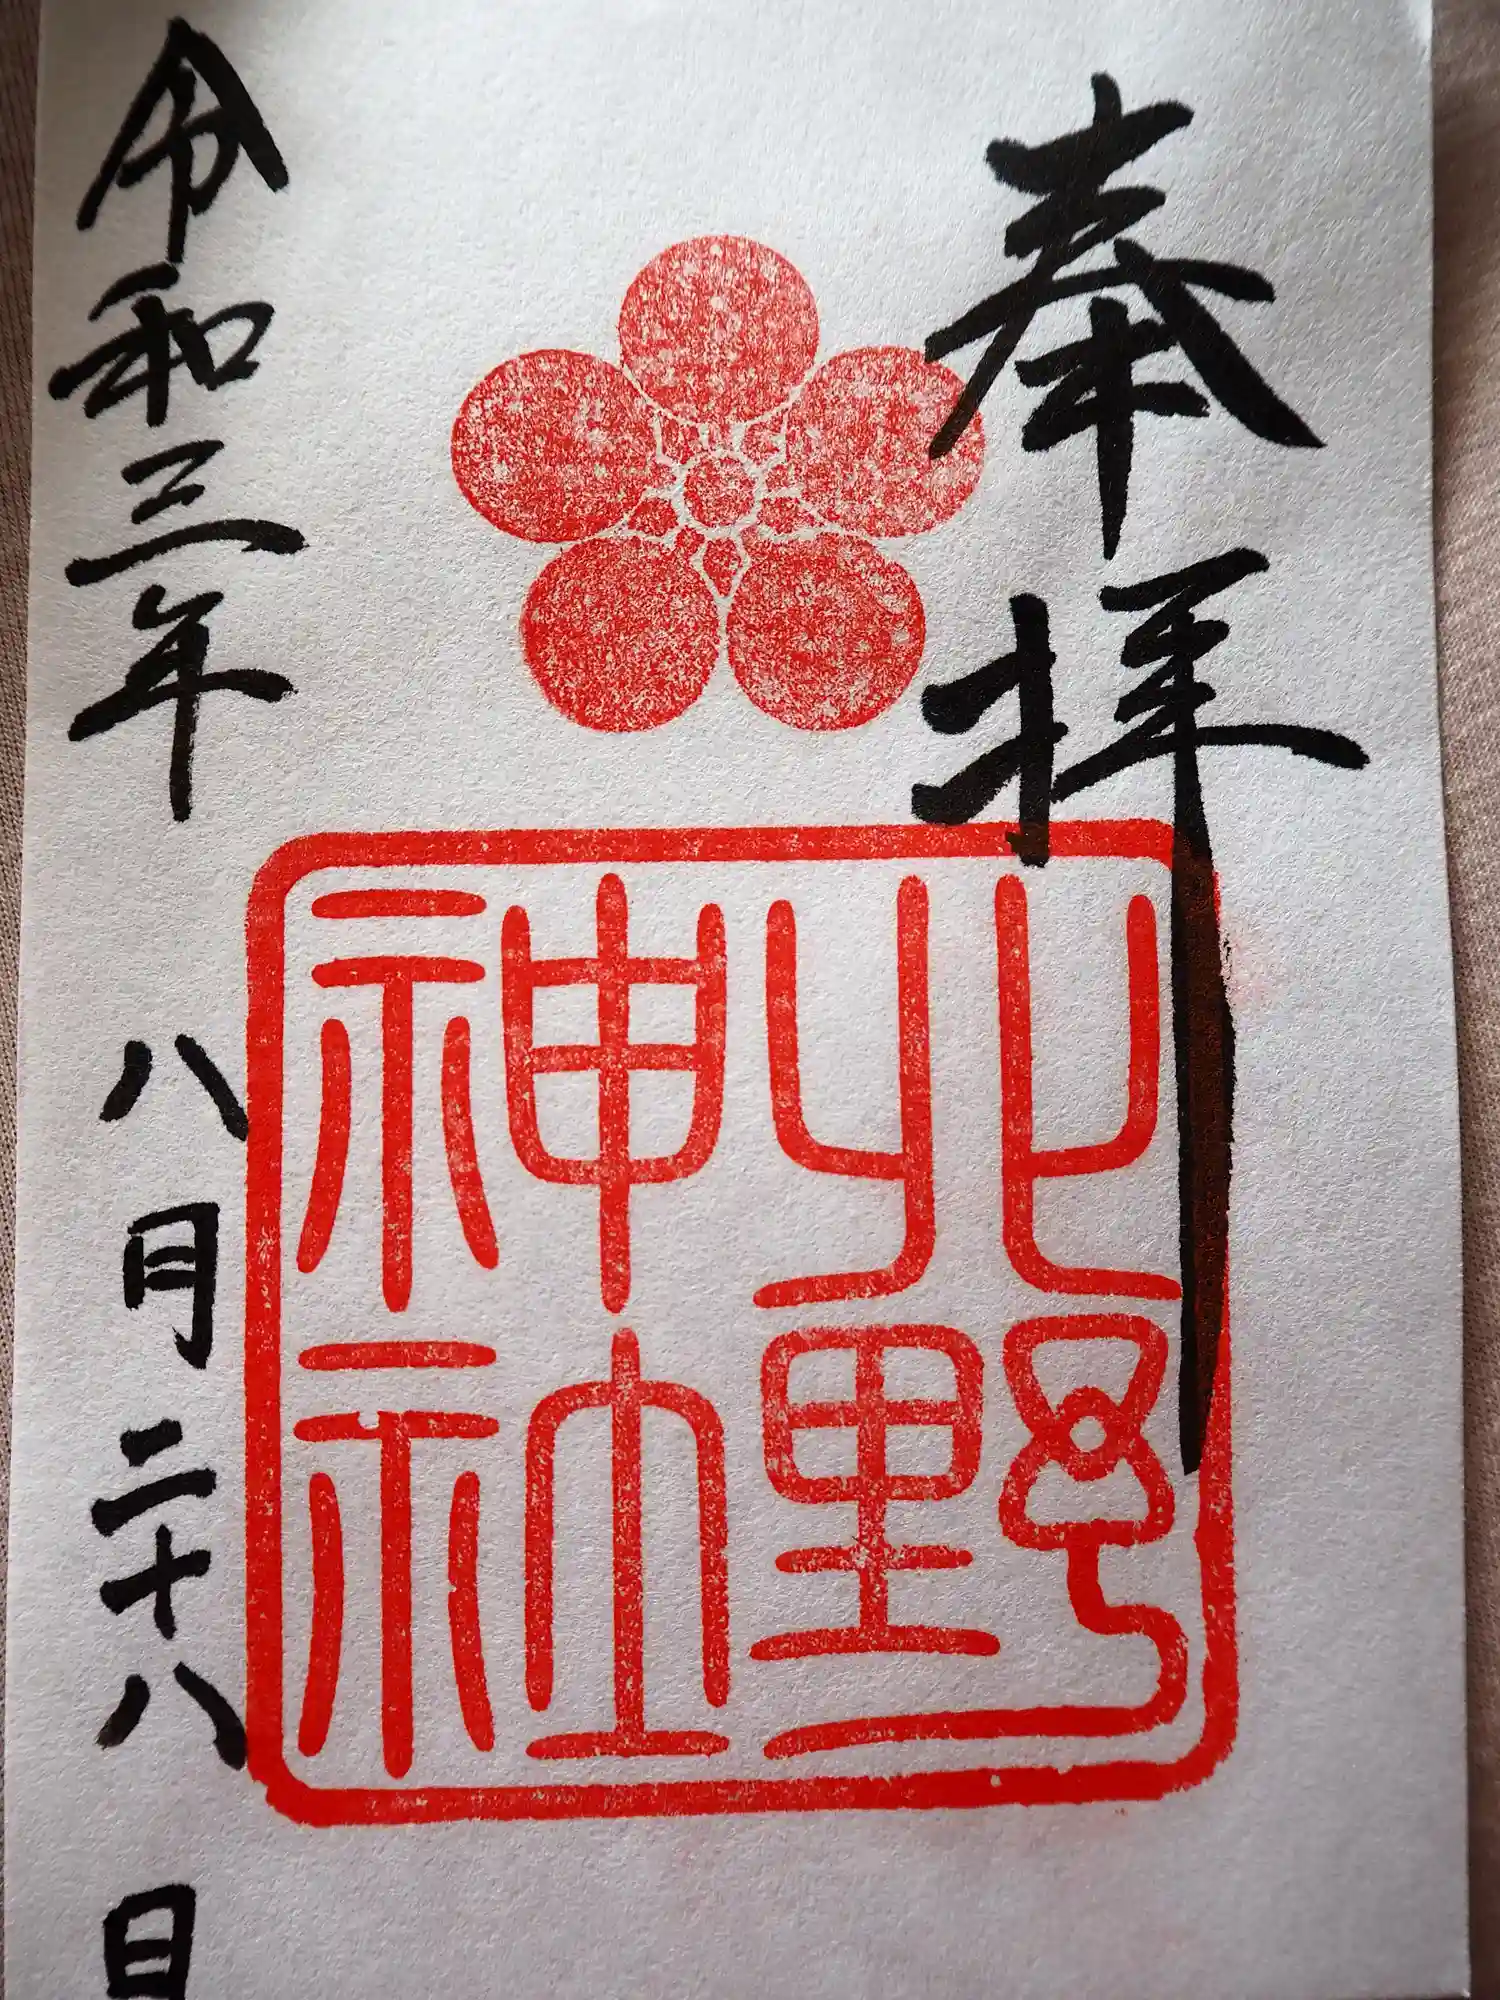 奉拝
北野
神社
令和三年 八月 二十八 日